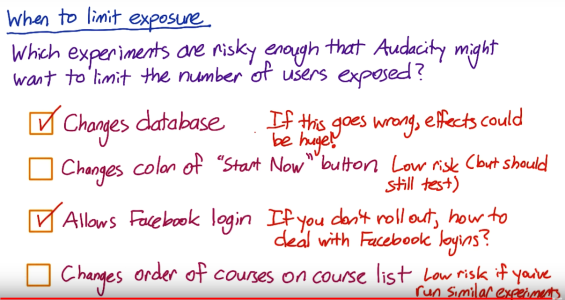 When to limit exposure
Which experiments are risky enough that Audacity might
want to limit the number of users exposed?
Changes database If this goes wrong, effects could
be huge!
Changes color of "Start Now" button Low risk (but should
still test)
Allows Facebook login If you don't roll out, how to
deal with Facebook logins?
Changes order of courses on course list Low risk if you've
run similar experiments